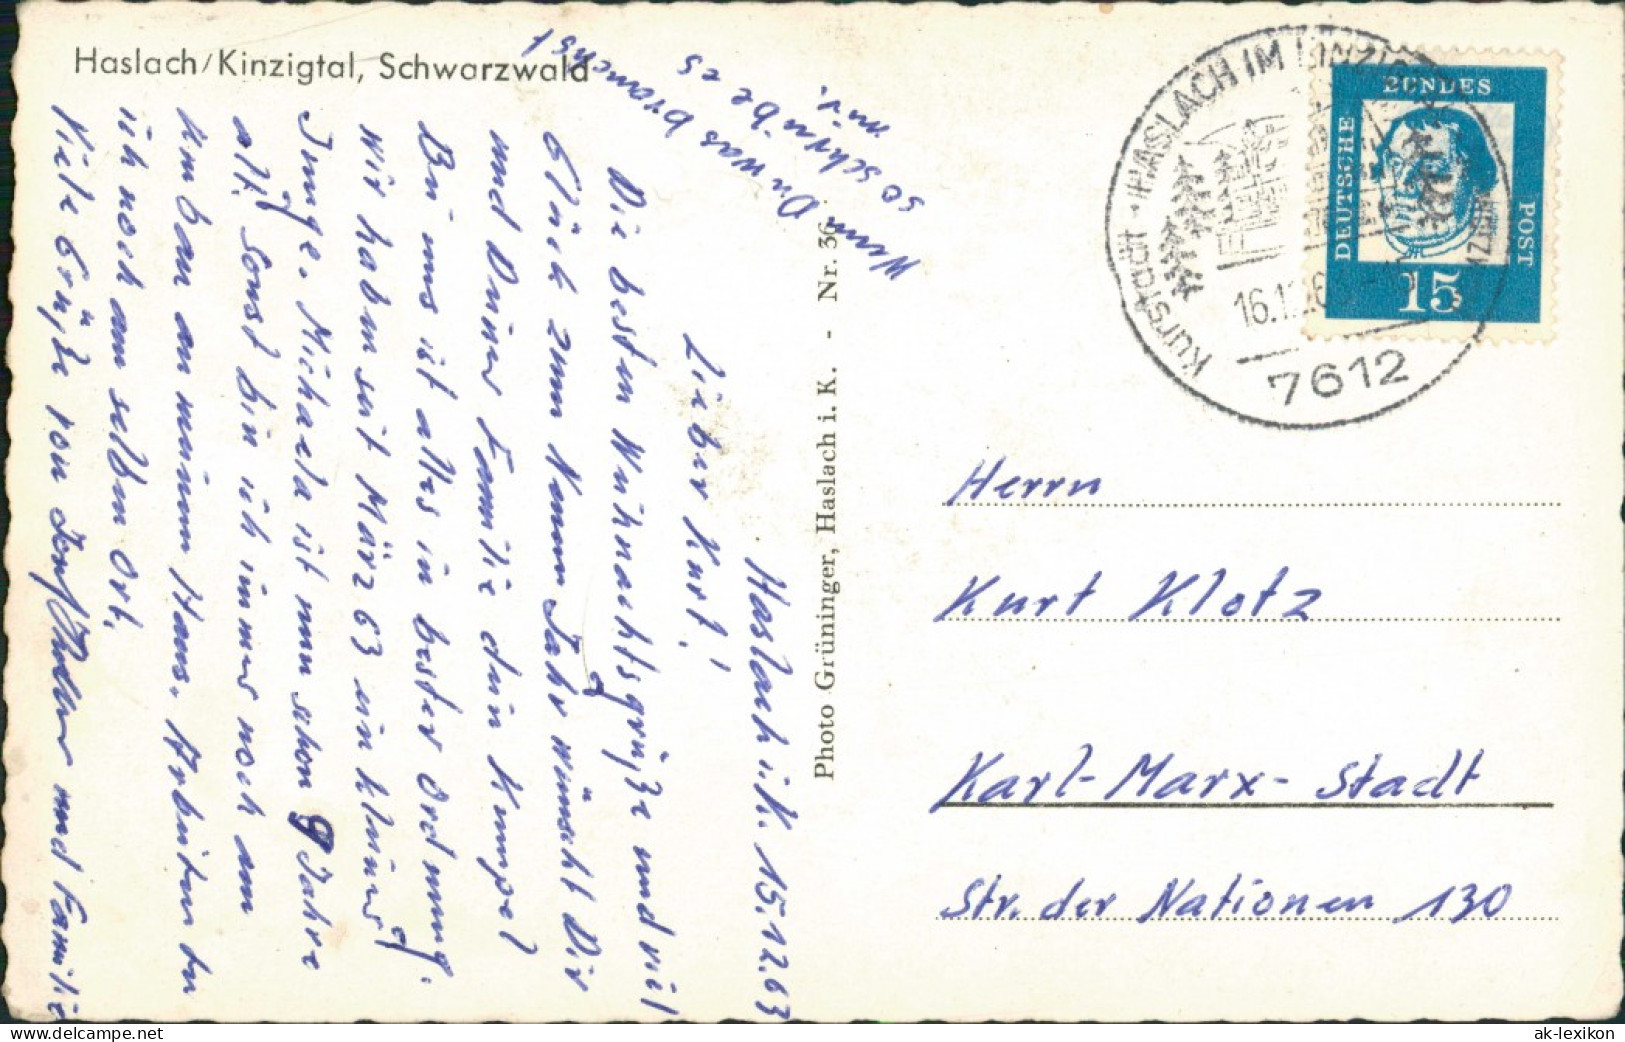 Haslach/Kinzigtal, Schwarzwald
Haslach i. K. 15.12.63
Lieber Kurt!
Die besten Weihnachtsgrüße und viel
Glück zum Neuen Jahr wünscht Dir
und Deiner Familie dein Kumpel
Bei uns ist alles in bester Ordnung.
Wir haben seit März 63 ein kleiner
Junge. Michaela ist nun schon 9 Jahre
alt. Sonst bin ich immer noch am
Umbau an meinem Haus. Arbeiten tu
ich noch am selben Ort.
Viele Grüße von und Familie
Wenn Du was brauchst
so schreibe es
mir.
Photo Grüninger, Haslach i. K. - Nr. 36
Kurstadt · HASLACH IM KINZIGTAL
16.12.63
7612
DEUTSCHE
BUNDES
POST
15
Herrn
Kurt Klotz
Karl-Marx-Stadt
Str. der Nationen 130
delcampe.net
ak-lexikon